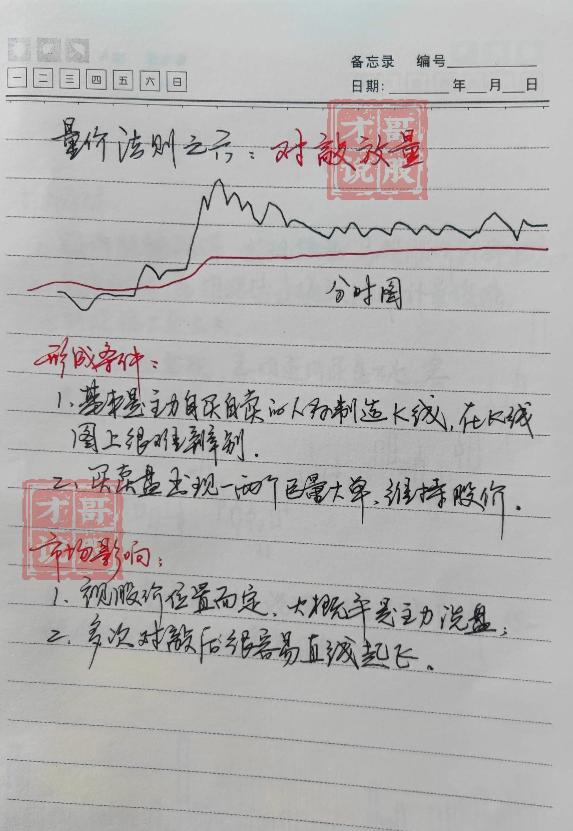 备忘录 编号
一 二 三 四 五 六 日
日期: 年 月 日
才哥说股
量价法则之六：对敲放量
分时图
形成条件：
1、基本是主力自买自卖的人为制造K线，在K线
图上很难辨别.
2、买卖盘出现一两个巨量大单、维持股价.
才哥说
市场影响：
1、视股价位置而定，大概率是主力洗盘；
2、多次对敲后很容易直线起飞.